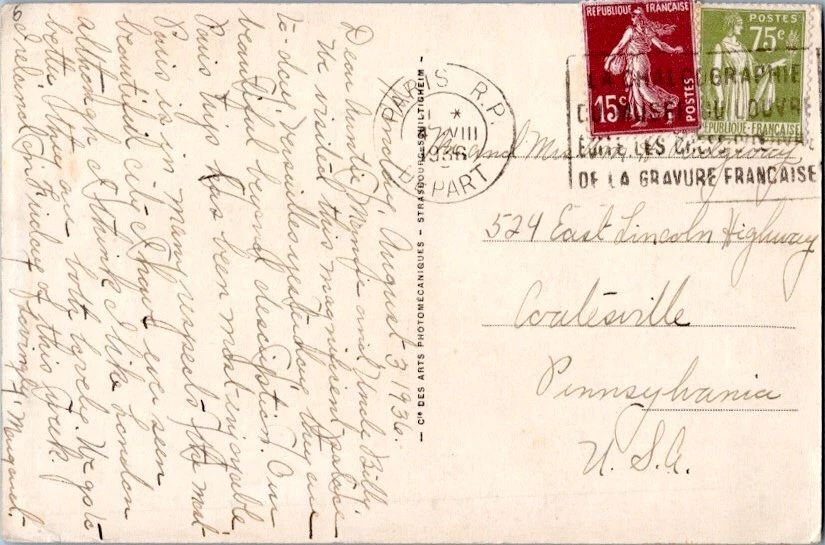 Monday, August 3, 1936.
Dear Auntie Mamie and Uncle Billy
We visited this magnificent palace
to-day, Versailles yesterday. They are
beautiful beyond description. Our
Paris trip has been most enjoyable.
Paris is in many respects the most
beautiful city I have ever seen
although I think I like London
better. They are both lovely. We go to
Ireland on Friday of this week.
Lovingly, Margaret.
Cie DES ARTS PHOTOMÉCANIQUES - STRASBOURG-SCHILTIGHEIM -
PARIS R.P.
*
VIII
1936
DÉPART
REPUBLIQUE FRANÇAISE
15c
POSTES
POSTES
75c
REPUBLIQUE FRANÇAISE
LA CHALCOGRAPHIE
DU MUSEE DU LOUVRE
EDITE LES CHEFS D'
DE LA GRAVURE FRANÇAISE
and Mrs.
524 East Lincoln Highway
Coatesville
Pennsylvania
U.S.A.